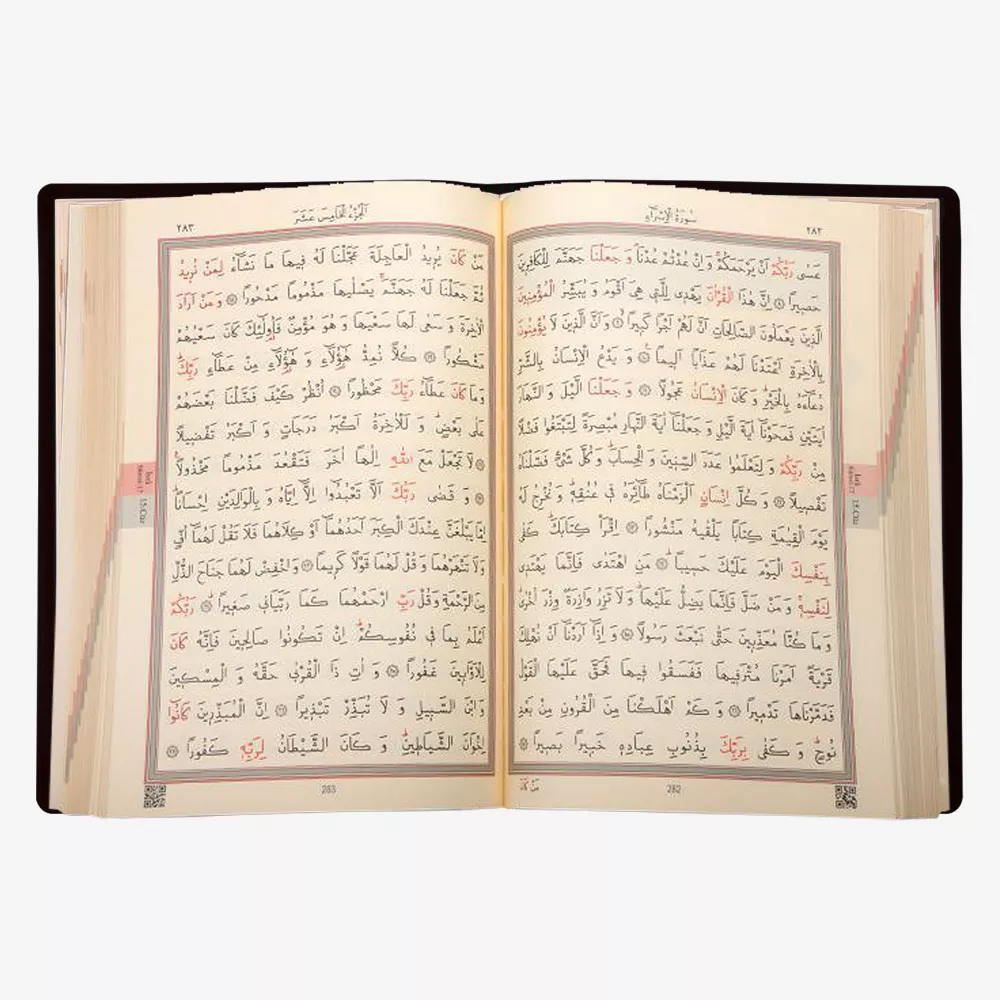 سُورَةُ الْاِسْرَاءِ
٢٨٢
عَسٰى رَبُّكُمْ اَنْ يَرْحَمَكُمْۚ وَاِنْ عُدْتُمْ عُدْنَاۢ وَجَعَلْنَا جَهَنَّمَ لِلْكَافِرٖينَ
حَصٖيرًا ۝٨ اِنَّ هٰذَا الْقُرْاٰنَ يَهْدٖى لِلَّتٖى هِىَ اَقْوَمُ وَيُبَشِّرُ الْمُؤْمِنٖينَ
الَّذٖينَ يَعْمَلُونَ الصَّالِحَاتِ اَنَّ لَهُمْ اَجْرًا كَبٖيرًاۙ ۝٩ وَاَنَّ الَّذٖينَ لَا يُؤْمِنُونَ
بِالْاٰخِرَةِ اَعْتَدْنَا لَهُمْ عَذَابًا اَلٖيمًاࣖ ۝١٠ وَيَدْعُ الْاِنْسَانُ بِالشَّرِّ
دُعَٓاءَهُ بِالْخَيْرِؕ وَكَانَ الْاِنْسَانُ عَجُولًا ۝١١ وَجَعَلْنَا الَّيْلَ وَالنَّهَارَ
اٰيَتَيْنِ فَمَحَوْنَٓا اٰيَةَ الَّيْلِ وَجَعَلْنَٓا اٰيَةَ النَّهَارِ مُبْصِرَةً لِتَبْتَغُوا فَضْلًا
مِنْ رَبِّكُمْ وَلِتَعْلَمُوا عَدَدَ السِّنٖينَ وَالْحِسَابَؕ وَكُلَّ شَىْءٍ فَصَّلْنَاهُ
تَفْصٖيلًا ۝١٢ وَكُلَّ اِنْسَانٍ اَلْزَمْنَاهُ طَٓائِرَهُ فٖى عُنُقِهٖؕ وَنُخْرِجُ لَهُ
يَوْمَ الْقِيٰمَةِ كِتَابًا يَلْقٰيهُ مَنْشُورًا ۝١٣ اِقْرَأْ كِتَابَكَؕ كَفٰى
بِنَفْسِكَ الْيَوْمَ عَلَيْكَ حَسٖيبًاؕ ۝١٤ مَنِ اهْتَدٰى فَاِنَّمَا يَهْتَدٖى
لِنَفْسِهٖۚ وَمَنْ ضَلَّ فَاِنَّمَا يَضِلُّ عَلَيْهَاؕ وَلَا تَزِرُ وَازِرَةٌ وِزْرَ اُخْرٰىؕ
وَمَا كُنَّا مُعَذِّبٖينَ حَتّٰى نَبْعَثَ رَسُولًا ۝١٥ وَاِذَٓا اَرَدْنَٓا اَنْ نُهْلِكَ
قَرْيَةً اَمَرْنَا مُتْرَفٖيهَا فَفَسَقُوا فٖيهَا فَحَقَّ عَلَيْهَا الْقَوْلُ
فَدَمَّرْنَاهَا تَدْمٖيرًا ۝١٦ وَكَمْ اَهْلَكْنَا مِنَ الْقُرُونِ مِنْ بَعْدِ
نُوحٍؕ وَكَفٰى بِرَبِّكَ بِذُنُوبِ عِبَادِهٖ خَبٖيرًا بَصٖيرًا ۝١٧
مَنْ كَانَ
282
15.Cüz
٢٨٣
اَلْجُزْءُ الْخَامِسَ عَشَرَ
مَنْ كَانَ يُرٖيدُ الْعَاجِلَةَ عَجَّلْنَا لَهُ فٖيهَا مَا نَشَٓاءُ لِمَنْ نُرٖيدُ
ثُمَّ جَعَلْنَا لَهُ جَهَنَّمَۚ يَصْلٰيهَا مَذْمُومًا مَدْحُورًا ۝١٨ وَمَنْ اَرَادَ
الْاٰخِرَةَ وَسَعٰى لَهَا سَعْيَهَا وَهُوَ مُؤْمِنٌ فَاُو۬لٰٓئِكَ كَانَ سَعْيُهُمْ
مَشْكُورًا ۝١٩ كُلًّا نُمِدُّ هٰٓؤُ۬لَٓاءِ وَهٰٓؤُ۬لَٓاءِ مِنْ عَطَٓاءِ رَبِّكَؕ
وَمَا كَانَ عَطَٓاءُ رَبِّكَ مَحْظُورًا ۝٢٠ اُنْظُرْ كَيْفَ فَضَّلْنَا بَعْضَهُمْ
عَلٰى بَعْضٍؕ وَلَلْاٰخِرَةُ اَكْبَرُ دَرَجَاتٍ وَاَكْبَرُ تَفْضٖيلًا
۝٢١ لَا تَجْعَلْ مَعَ اللّٰهِ اِلٰهًا اٰخَرَ فَتَقْعُدَ مَذْمُومًا مَخْذُولًاࣖ
۝٢٢ وَقَضٰى رَبُّكَ اَلَّا تَعْبُدُٓوا اِلَّٓا اِيَّاهُ وَبِالْوَالِدَيْنِ اِحْسَانًاؕ
اِمَّا يَبْلُغَنَّ عِنْدَكَ الْكِبَرَ اَحَدُهُمَٓا اَوْ كِلَاهُمَا فَلَا تَقُلْ لَهُمَٓا اُفٍّ
وَلَا تَنْهَرْهُمَا وَقُلْ لَهُمَا قَوْلًا كَرٖيمًا ۝٢٣ وَاخْفِضْ لَهُمَا جَنَاحَ الذُّلِّ
مِنَ الرَّحْمَةِ وَقُلْ رَبِّ ارْحَمْهُمَا كَمَا رَبَّيَانٖى صَغٖيرًاؕ ۝٢٤ رَبُّكُمْ
اَعْلَمُ بِمَا فٖى نُفُوسِكُمْؕ اِنْ تَكُونُوا صَالِحٖينَ فَاِنَّهُ كَانَ
لِلْاَوَّابٖينَ غَفُورًا ۝٢٥ وَاٰتِ ذَا الْقُرْبٰى حَقَّهُ وَالْمِسْكٖينَ
وَابْنَ السَّبٖيلِ وَلَا تُبَذِّرْ تَبْذٖيرًا ۝٢٦ اِنَّ الْمُبَذِّرٖينَ كَانُٓوا
اِخْوَانَ الشَّيَاطٖينِؕ وَكَانَ الشَّيْطَانُ لِرَبِّهٖ كَفُورًا ۝٢٧
283
15.Cüz